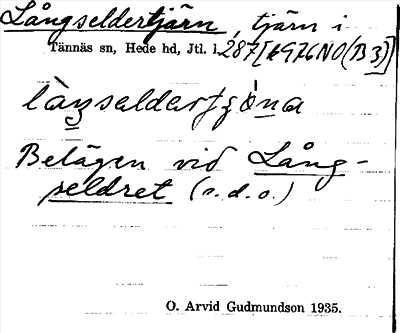 Långseldertjärn, tjärn i
Tännäs sn, Hede hd, Jtl. l. 287 [k976NO(B3)]
làŋseldertjǫ̀na
Belägen vid Lång-
seldret (s.d.o.)
O. Arvid Gudmundson 1935.